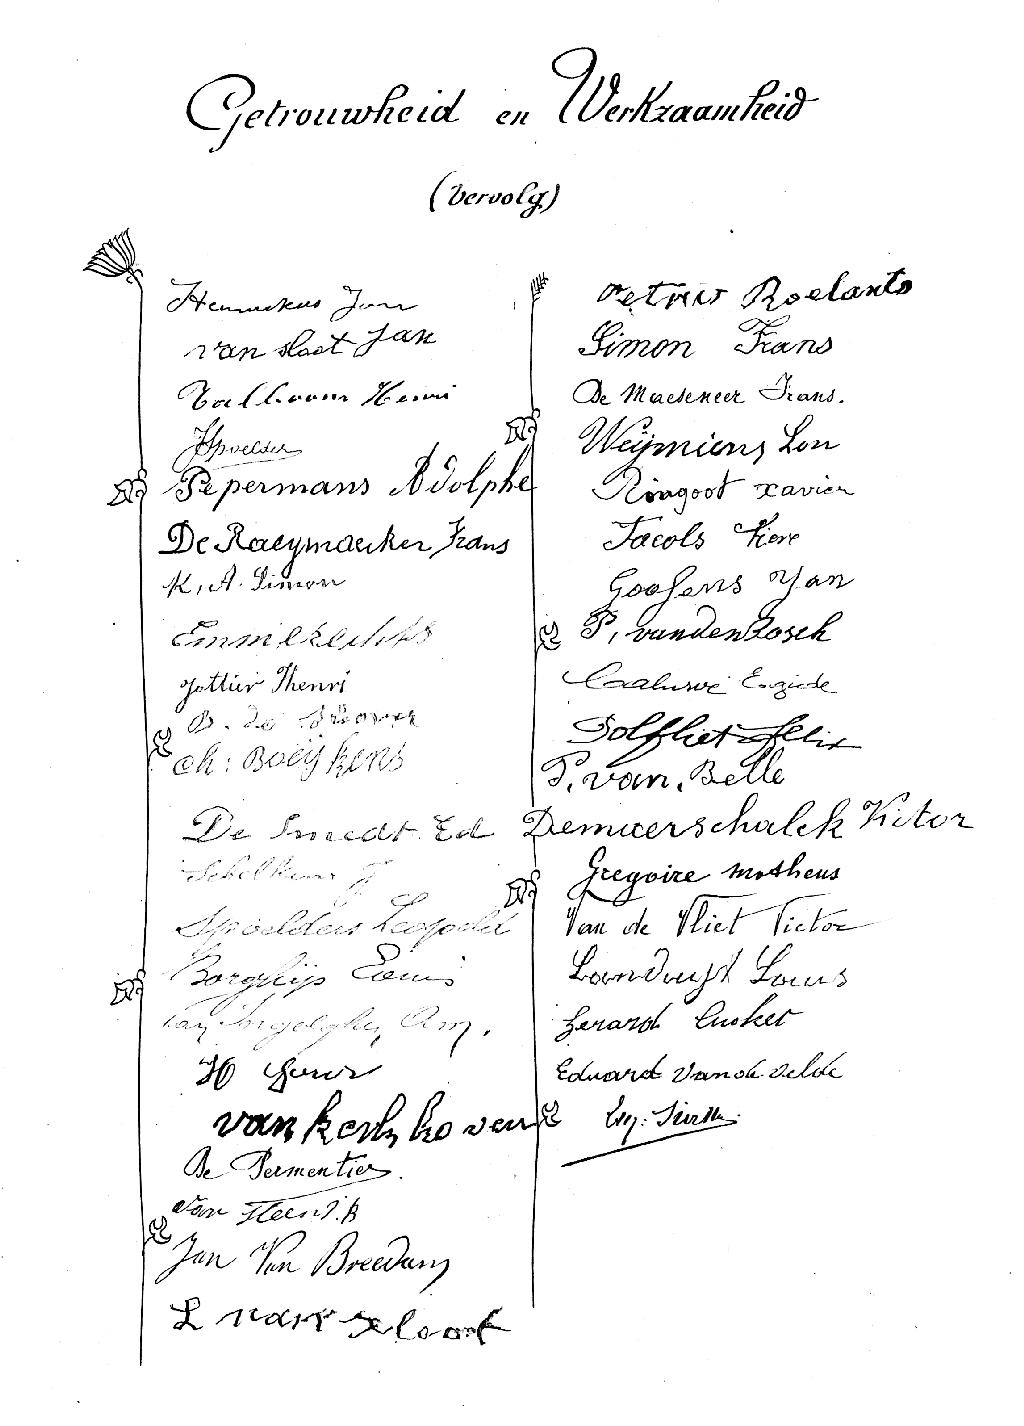 Getrouwheid en Werkzaamheid
(Vervolg)
Jan
van Slaet Jan
Henri
JSpoelders
Pepermans Adolphe
De Raeymaeker Frans
K, A. Simon
Emmelrechts
Gottier Thenri
B. de
ch: Boeykens
De Smedt Ed
Spoelders Leopold
Borghijs Louis
Am,
H
van kerkhoven
De Permentier.
van Steen J.B
Jan Van Breedam
L van Sloot
Petrus Roelants
Simon Frans
De Maeseneer Frans.
Weymiens Lon
Ringoot xavier
Jacols Piere
Goosens Jan
P, vandenbosch
Egide
Dolfliet Felix
P. van. Belle
Demeerschalck Victor
Gregoire Motheus
Van de Vliet Victor
Landuyt Louis
Gerard
Eduard Van de Velde